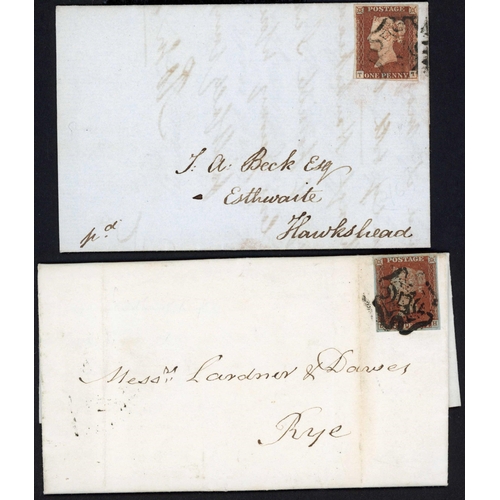 POSTAGE
ONE PENNY
T. A. Beck Esq
Esthwaite
Hawkshead
pd
POSTAGE
Messrs Lardner & Dawes
Rye